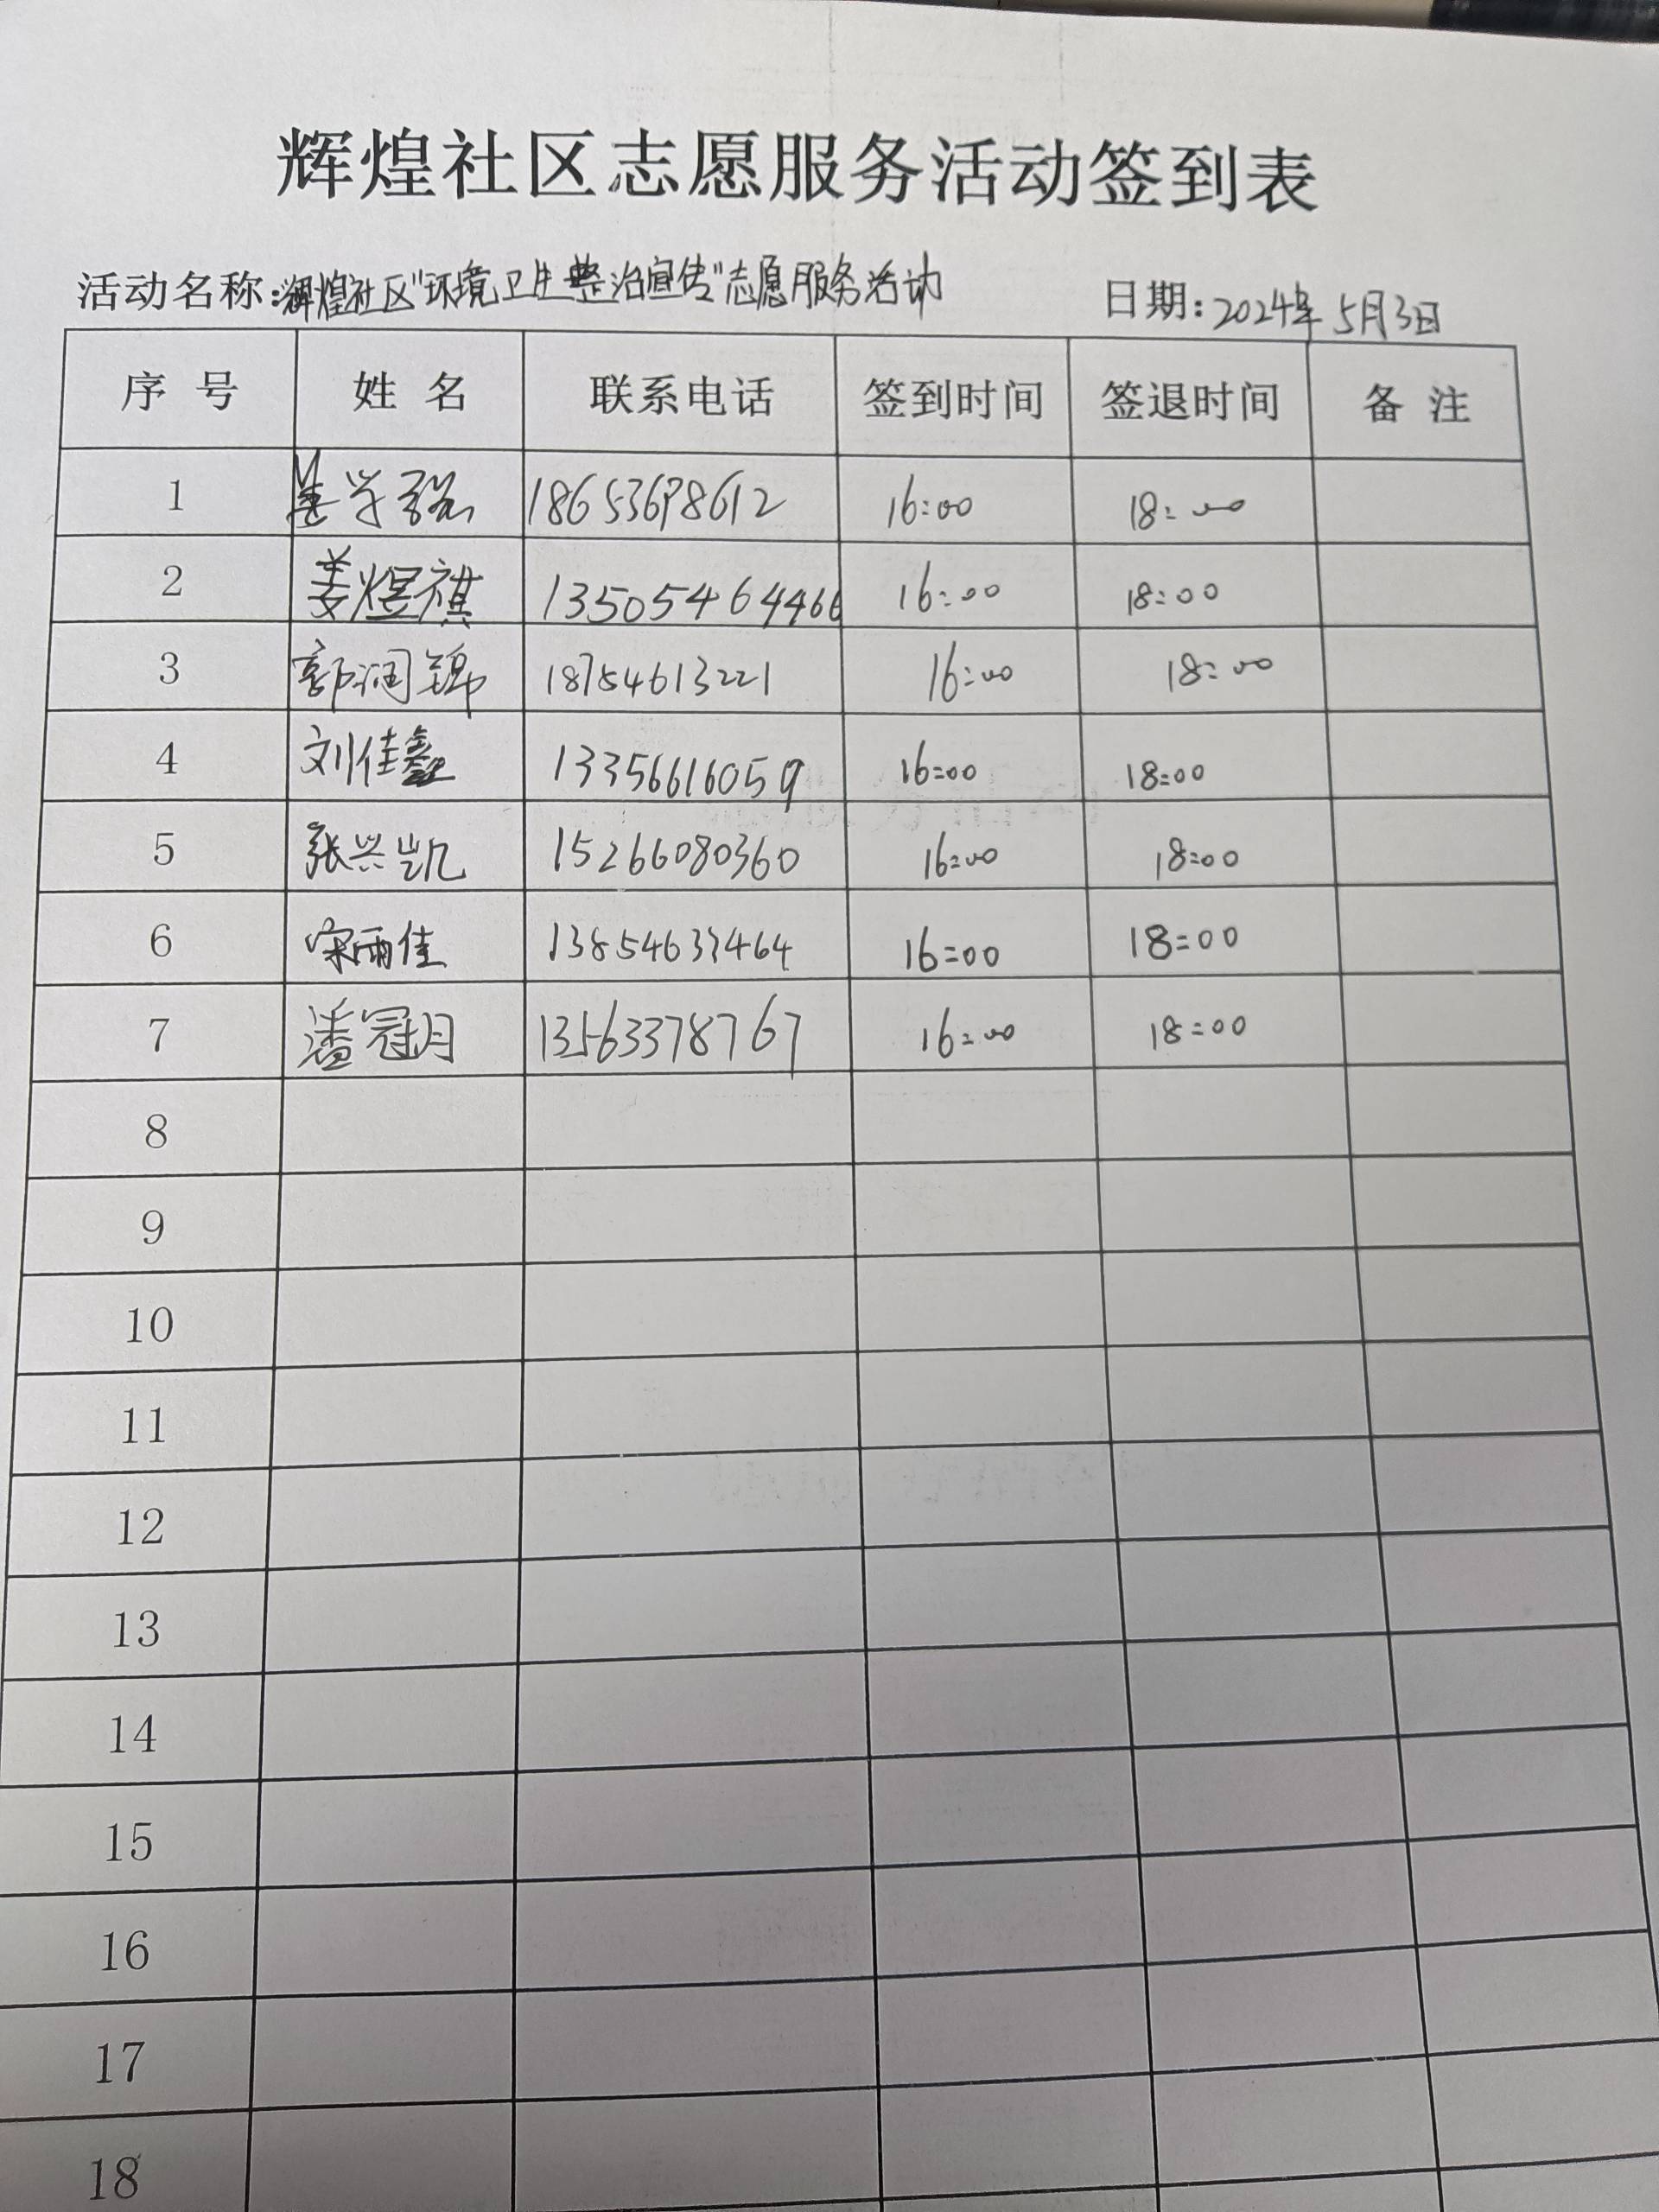 辉煌社区志愿服务活动签到表
活动名称:辉煌社区"环境卫生整治宣传"志愿服务活动 日期:2024年5月3日
序号 姓名 联系电话 签到时间 签退时间 备注
1 16:00 18:00
2 姜煜祺 13505464466 16:00 18:00
3 郭润锦 18754613221 16:00 18:00
4 刘佳鑫 13356616059 16:00 18:00
5 张兴凯 15266080360 16:00 18:00
6 宋雨佳 16:00 18:00
7 潘冠月 13563378767 16:00 18:00
8
9
10
11
12
13
14
15
16
17
18